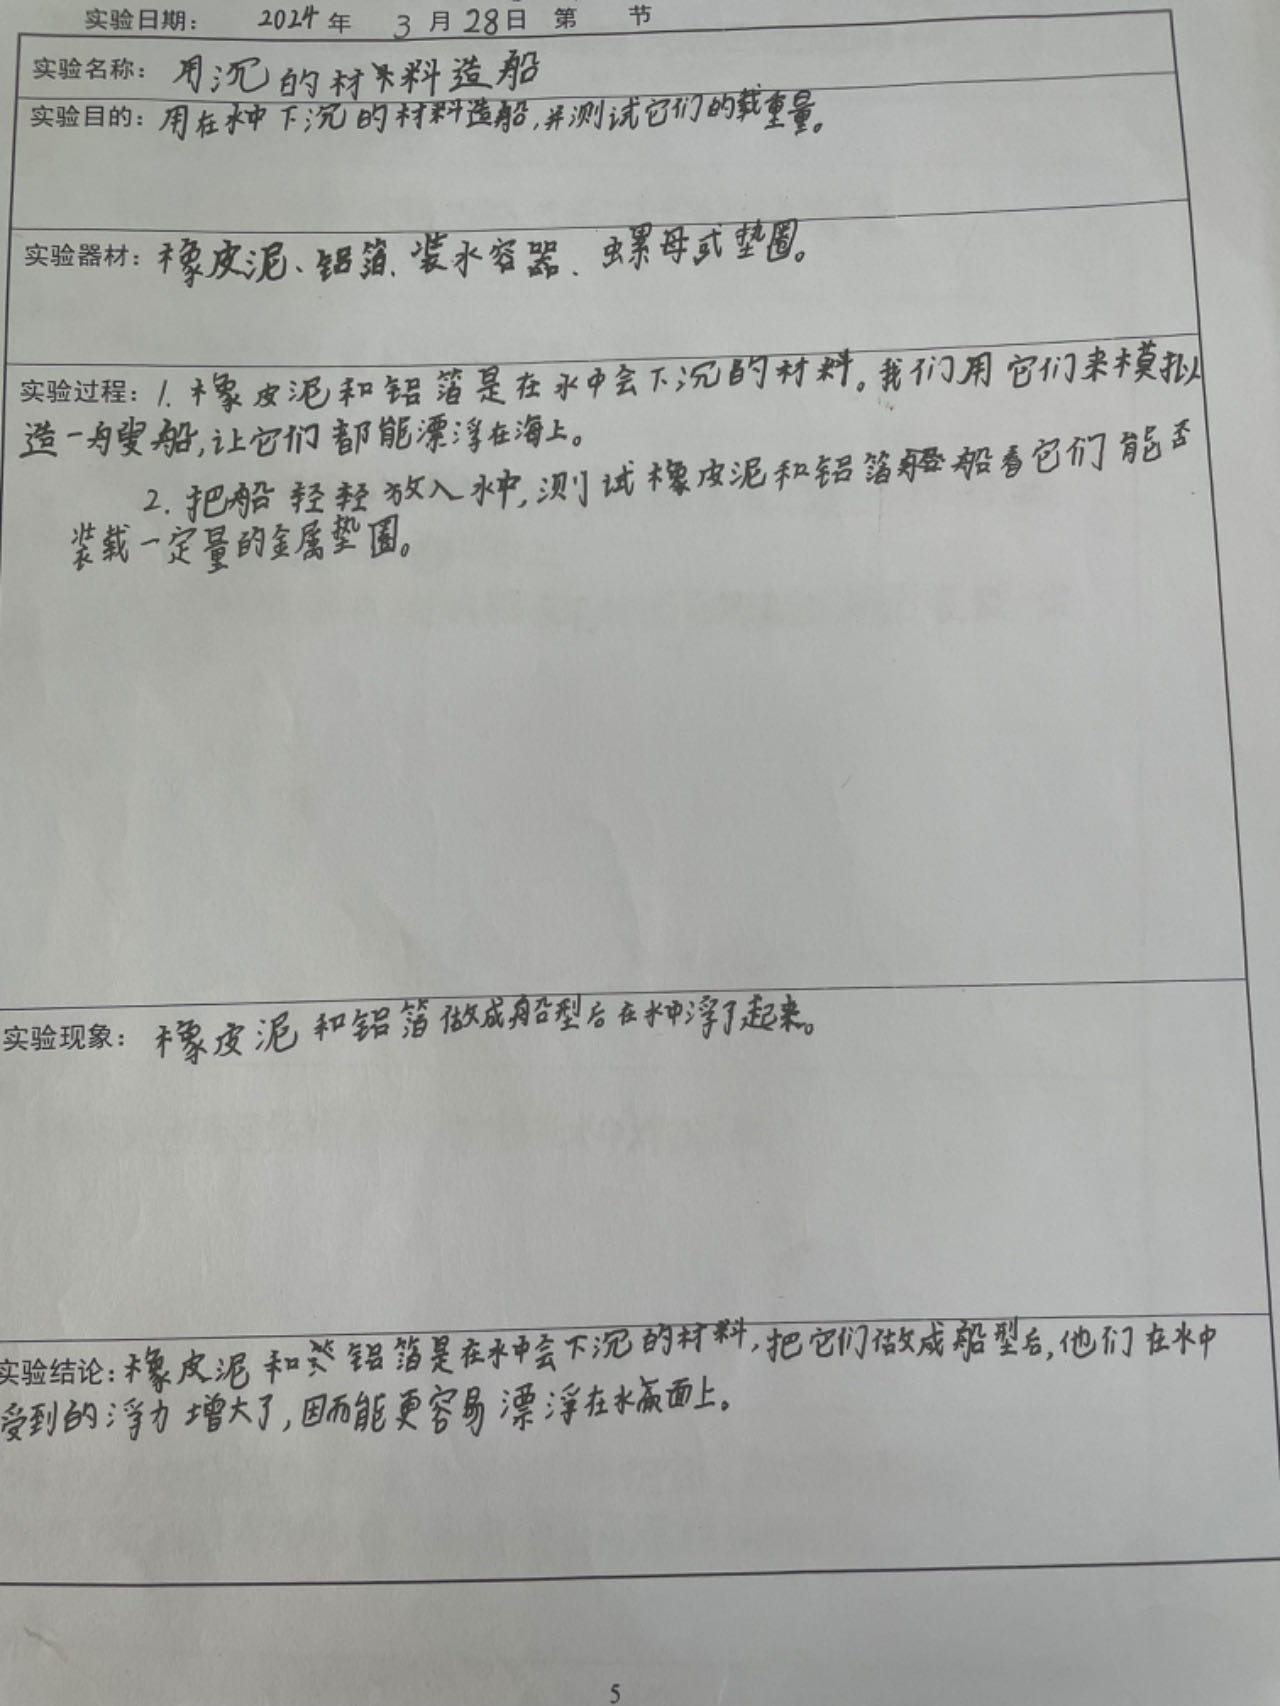 实验日期: 2024年 3月28日 第 节
实验名称: 用沉的材料造船
实验目的: 用在水中下沉的材料造船,并测试它们的载重量。
实验器材: 橡皮泥、铝箔、装水容器、螺母或垫圈。
实验过程: 1. 橡皮泥和铝箔是在水中会下沉的材料。我们用它们来模拟
造一艘船,让它们都能漂浮在海上。
2. 把船轻轻放入水中,测试橡皮泥和铝箔船看它们能否
装载一定量的金属垫圈。
实验现象: 橡皮泥和铝箔做成船型后在水中浮了起来。
实验结论: 橡皮泥和铝箔是在水中会下沉的材料,把它们做成船型后,他们在水中
受到的浮力增大了,因而能更容易漂浮在水面上。
5